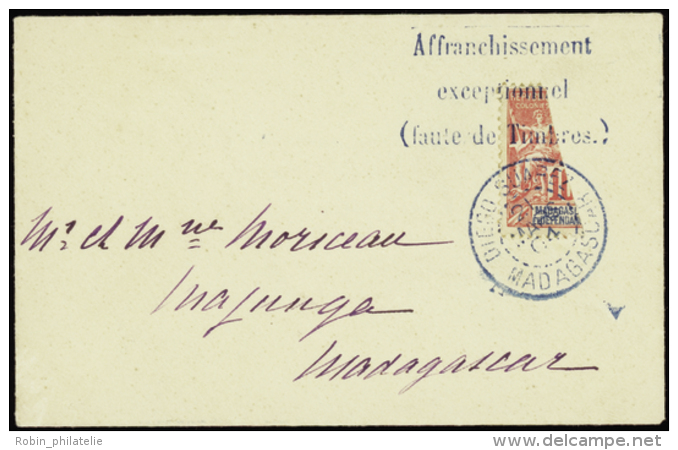 Affranchissement
exceptionnel
(faute de Timbres.)
COLONIES
MADAGASC
DEPENDAN
DIEGO SUAREZ
04
MADAGASCAR
Mr et Mme Moriceau
Majunga
Madagascar
Robin_philatelie
www.delcampe.net